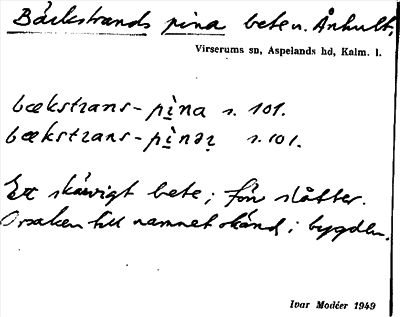 Bäckstrands pina beten. Ånhult,
Virserums sn, Aspelands hd, Kalm. l.
bækstrans-pìna s. 101.
bækstrans-pìnəṇ s. 101.
Ett skärvigt bete; förr slåtter.
Orsaken till namnet okänd i bygden.
Ivar Modéer 1949